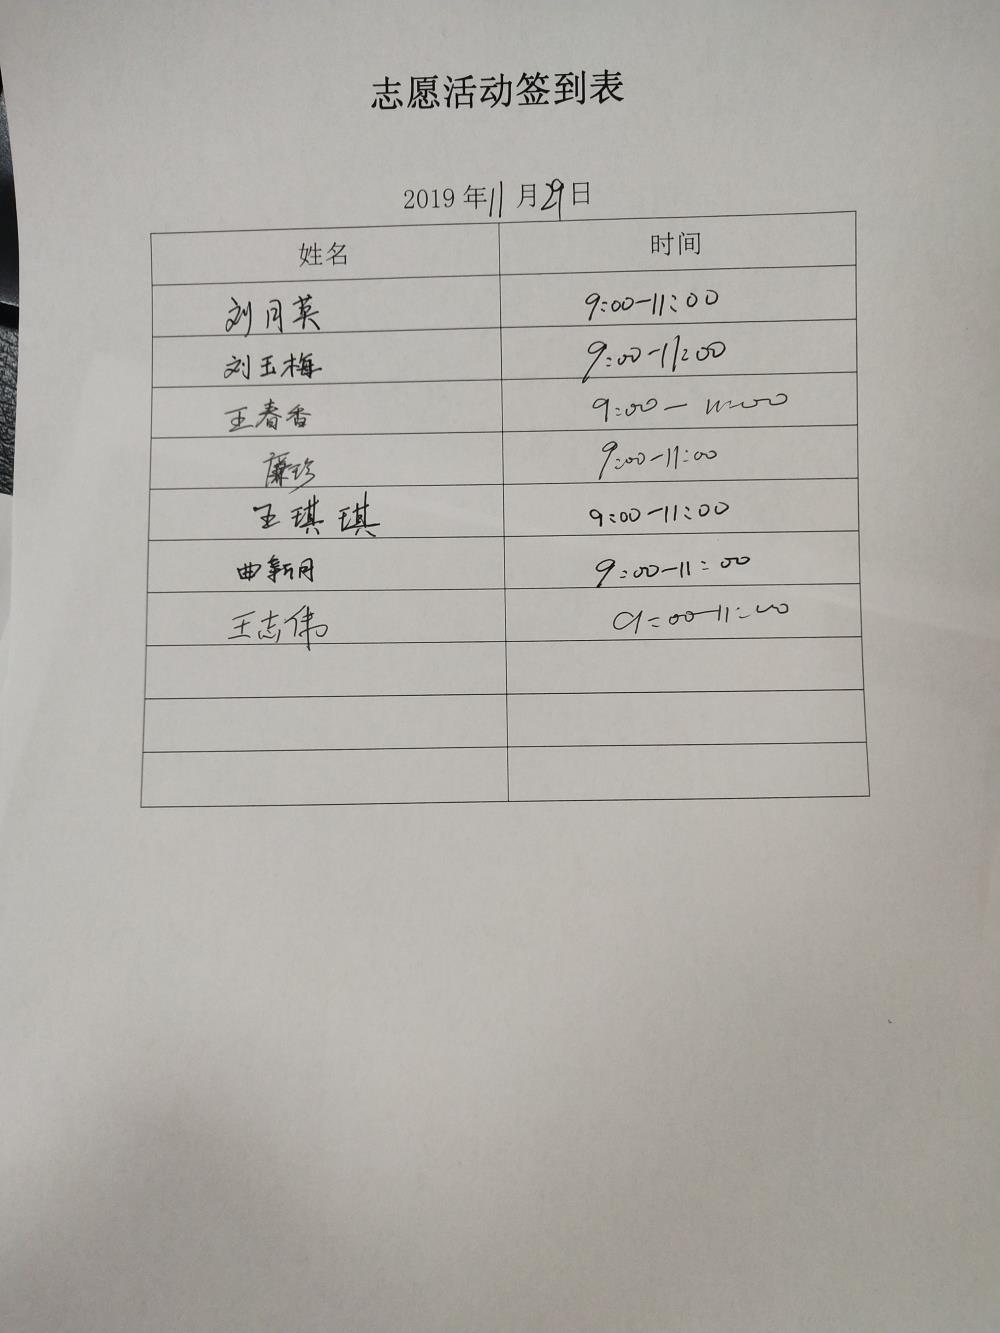 志愿活动签到表
2019年11月29日
姓名 时间
刘月英 9:00-11:00
刘玉梅 9:00-11:00
王春香 9:00-11:00
廉珍 9:00-11:00
王琪琪 9:00-11:00
曲新月 9:00-11:00
王志伟 9:00-11:00